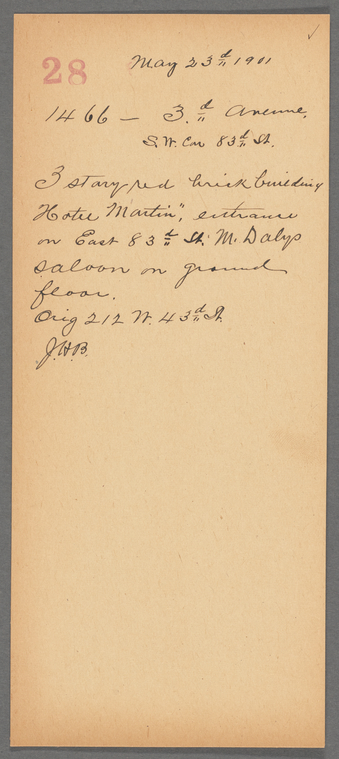 28
May 23d 1901
1466 — 3.d Avenue,
S.W. Cor 83d St.
3 story red brick building
"Hotel Martin", entrance
on East 83d St. M. Dalys
saloon on ground
floor.
Orig 212 W. 43d St.
J.H.B.